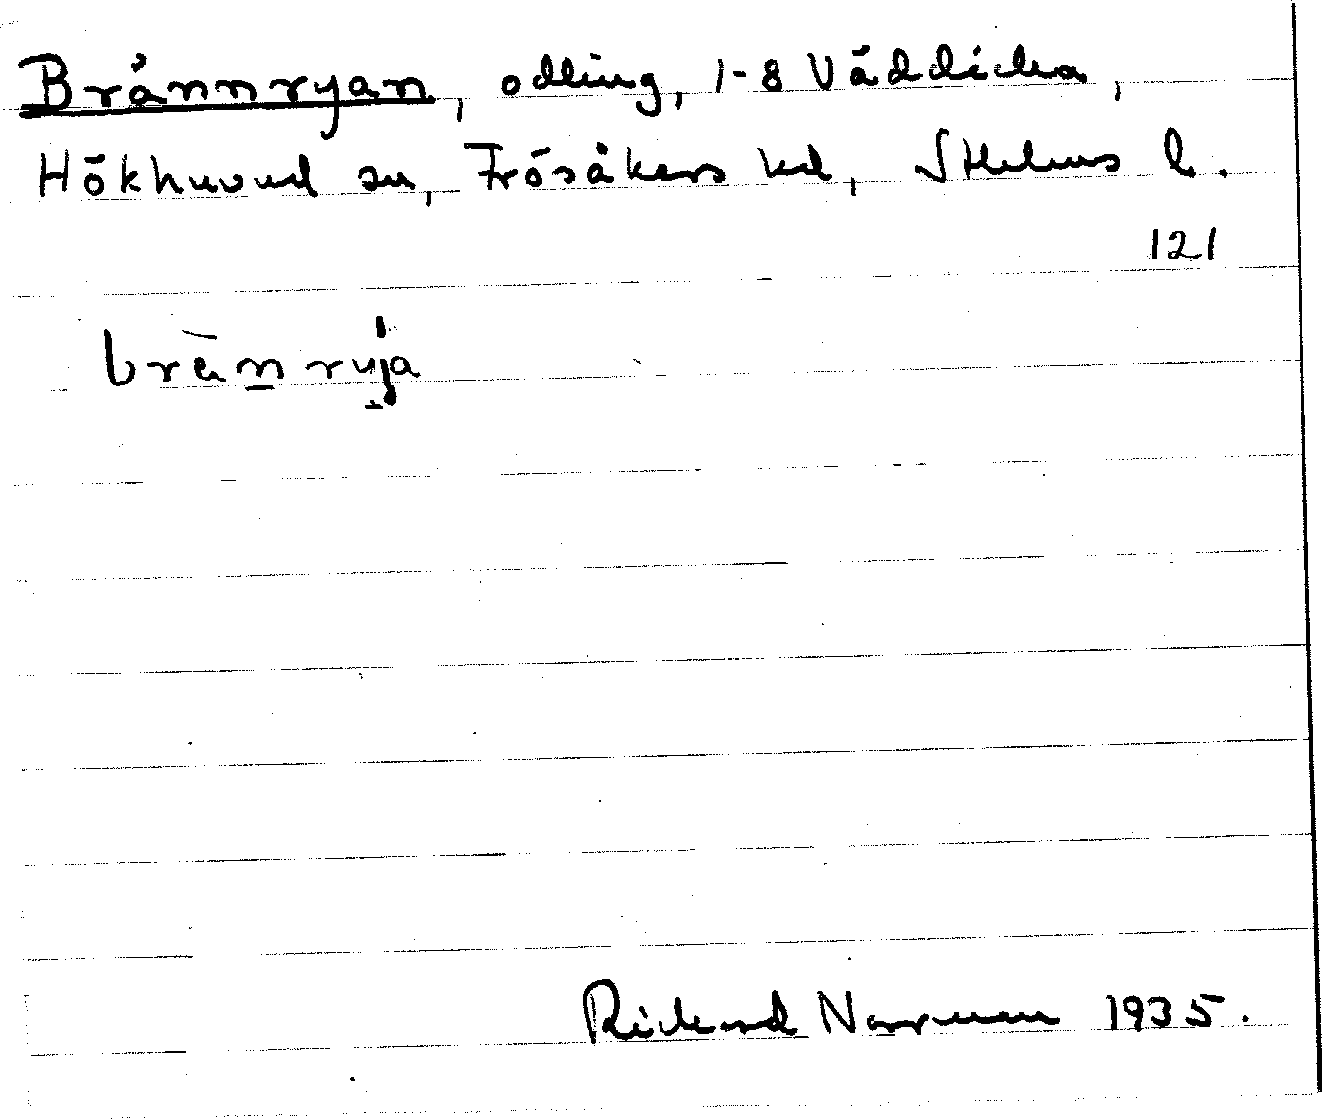 Brännryan, odling, 1-8 Väddicka,
Hökhuvud sn, Frösåkers hd, Sthlms l.
121
bränryja
Rickard Norrman 1935.